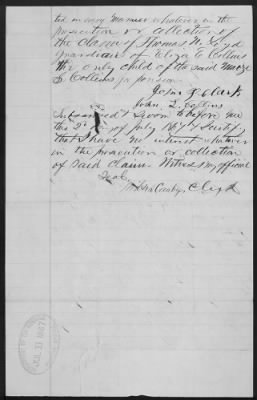 ted in any manner whatever in the
prosecution or collection of
the claim of Thomas H. Loyd
Guardian of Eliza E Collins
the only child of the said
S. Collins for pension
John F Clark
John L. Collins
Subscribed & Sworn to before me
this 2nd day of July 1867 & I certify
that I have no interest whatever
in the prosecution or collection
of said claim. Witness my official
Seal
Clerk
JUL 11 1867